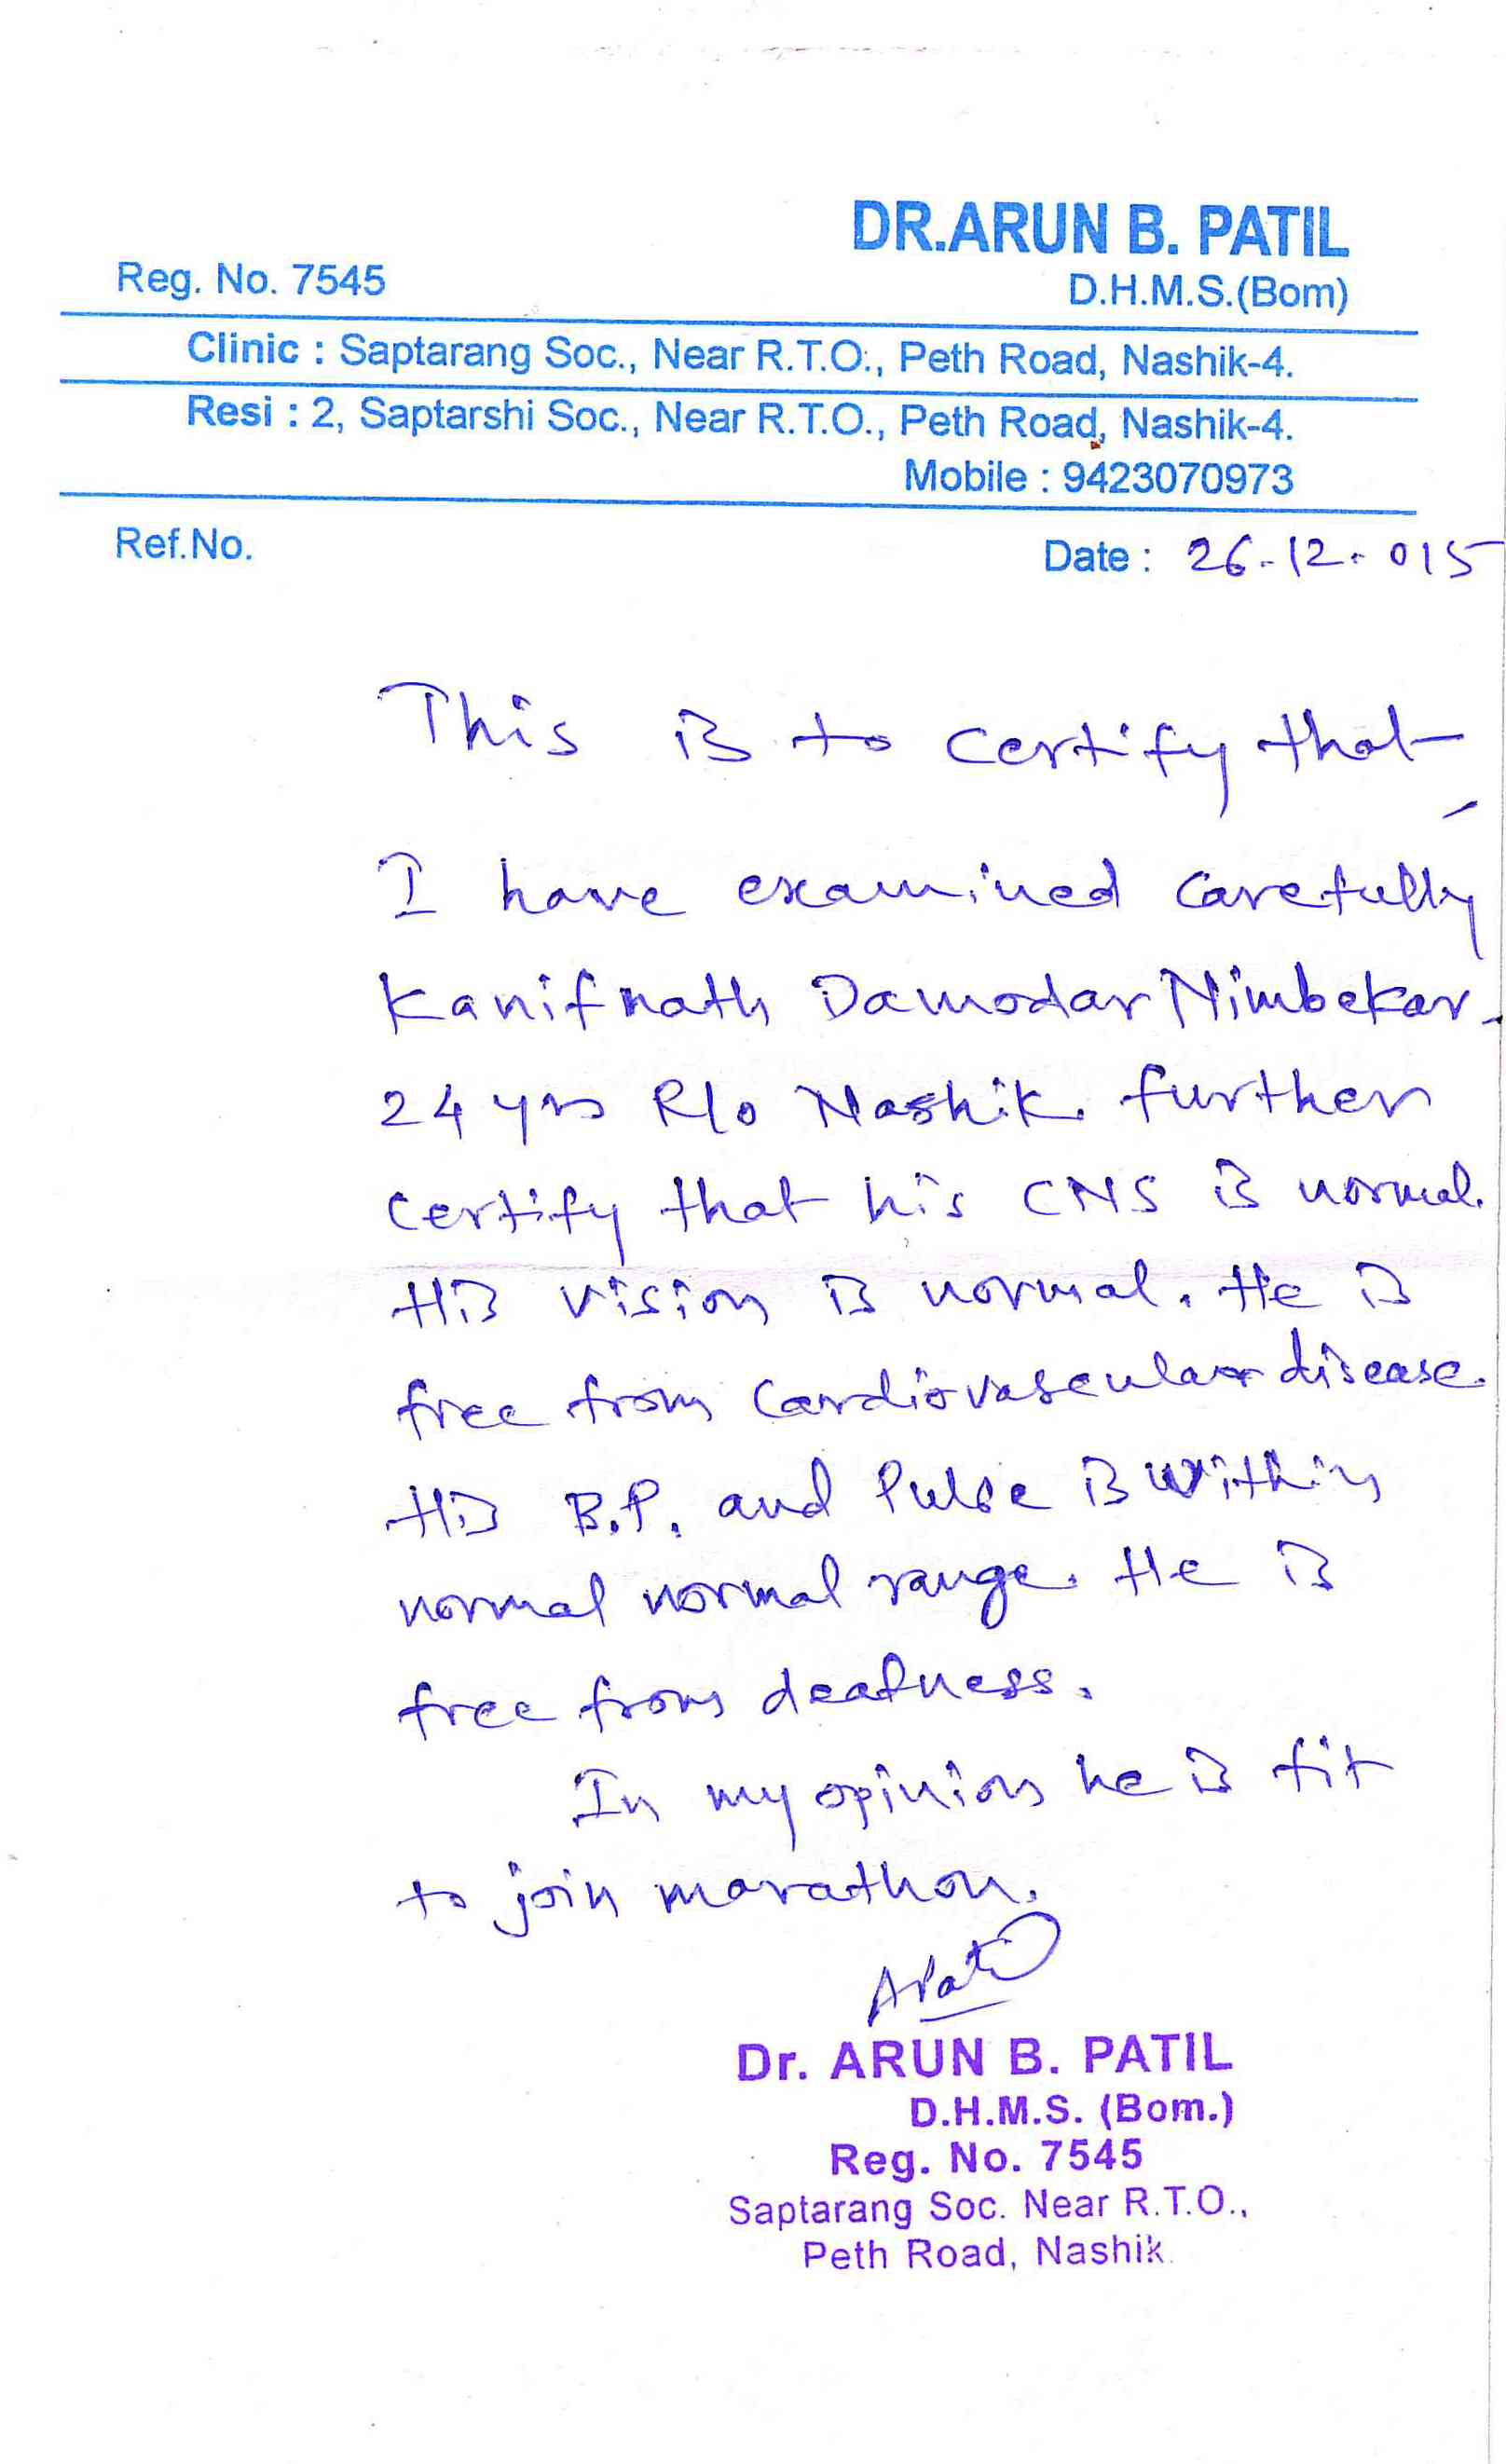 DR.ARUN B. PATIL
Reg. No. 7545
D.H.M.S.(Bom)
Clinic : Saptarang Soc., Near R.T.O., Peth Road, Nashik-4.
Resi : 2, Saptarshi Soc., Near R.T.O., Peth Road, Nashik-4.
Mobile : 9423070973
Ref.No.
Date : 26-12-015
This is to certify that
I have examined carefully
Kanifnath Damodar Nimbekar
24 yrs R/o Nashik. further
certify that his CNS is normal.
His vision is normal. He is
free from Cardiovascular disease.
His B.P. and Pulse is within
normal normal range. He is
free from deafness.
In my opinion he is fit
to join marathon.
APatil
Dr. ARUN B. PATIL
D.H.M.S. (Bom.)
Reg. No. 7545
Saptarang Soc. Near R.T.O.,
Peth Road, Nashik.